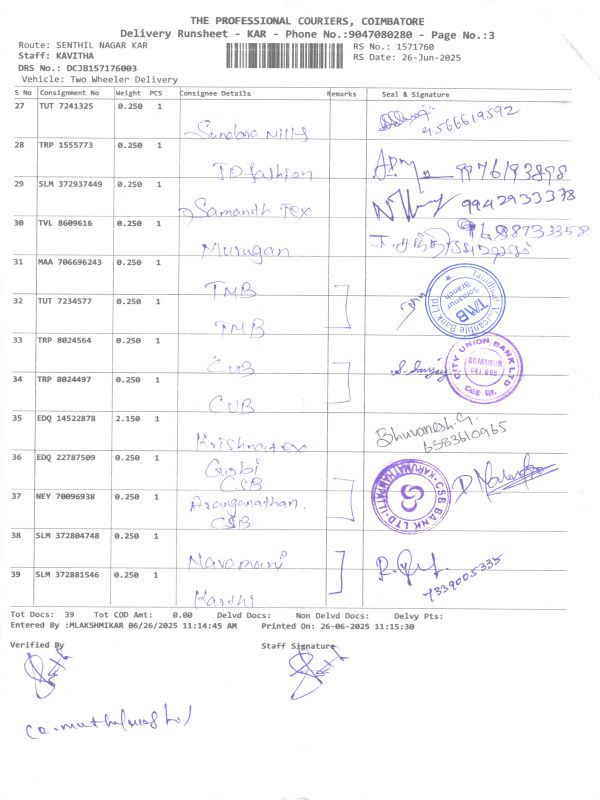 THE PROFESSIONAL COURIERS, COIMBATORE
Delivery Runsheet - KAR - Phone No.:9047080280 - Page No.:3
Route: SENTHIL NAGAR KAR RS No.: 1571760
Staff: KAVITHA RS Date: 26-Jun-2025
DRS No.: DCJB157176003
Vehicle: Two Wheeler Delivery
S No Consignment No Weight PCS Consignee Details Remarks Seal & Signature
27 TUT 7241325 0.250 1
Sundara Mills 9566619592
28 TRP 1555773 0.250 1
JD fashion
29 SLM 372937449 0.250 1
Samandh Tex 9942933378
30 TVL 8609616 0.250 1
Murugan
31 MAA 706696243 0.250 1
TMB
Tamilnad Mercantile Bank Ltd
TMB
Somanur
Branch
32 TUT 7234577 0.250 1
TMB
33 TRP 8024564 0.250 1
CUB
S. Sanjay
CITY UNION BANK LTD
SOMANUR
34 TRP 8024497 0.250 1
CUB
35 EDQ 14522878 2.150 1
Krishna tex
Bhuvanesh.G.
6383610965
36 EDQ 22787509 0.250 1
Gobi
CSB
CSB BANK LTD
KARUMATHAMPATTI
37 NEY 70096938 0.250 1
Aranganathan.
CSB
38 SLM 372804748 0.250 1
Navamani
7339005335
39 SLM 372881546 0.250 1
Karthi
Tot Docs: 39 Tot COD Amt: 0.00 Delvd Docs: Non Delvd Docs: Delvy Pts:
Entered By :MLAKSHMIKAR 06/26/2025 11:14:45 AM Printed On: 26-06-2025 11:15:30
Verified By Staff Signature